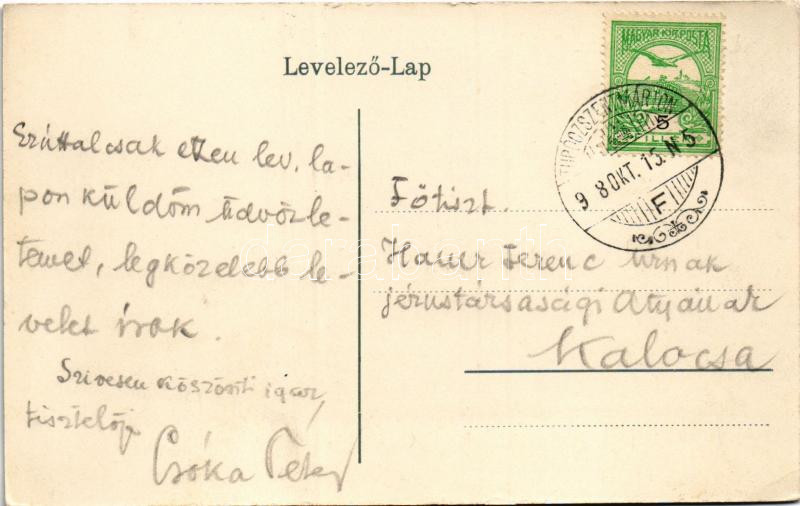 Levelező-Lap
MAGYAR KIR. POSTA
5
TURÓCZSZENTMÁRTON
9 8 OKT. 15. N 5
F
Ezúttal csak ezen lev. la-
pon küldöm üdvözle-
temet, legközelebb le-
velet írok.
Szívesen köszönti igaz
tisztelője
Csóka Péter
Főtiszt.
Hauer Ferenc úrnak
jézustársasági Atyának
Kalocsa